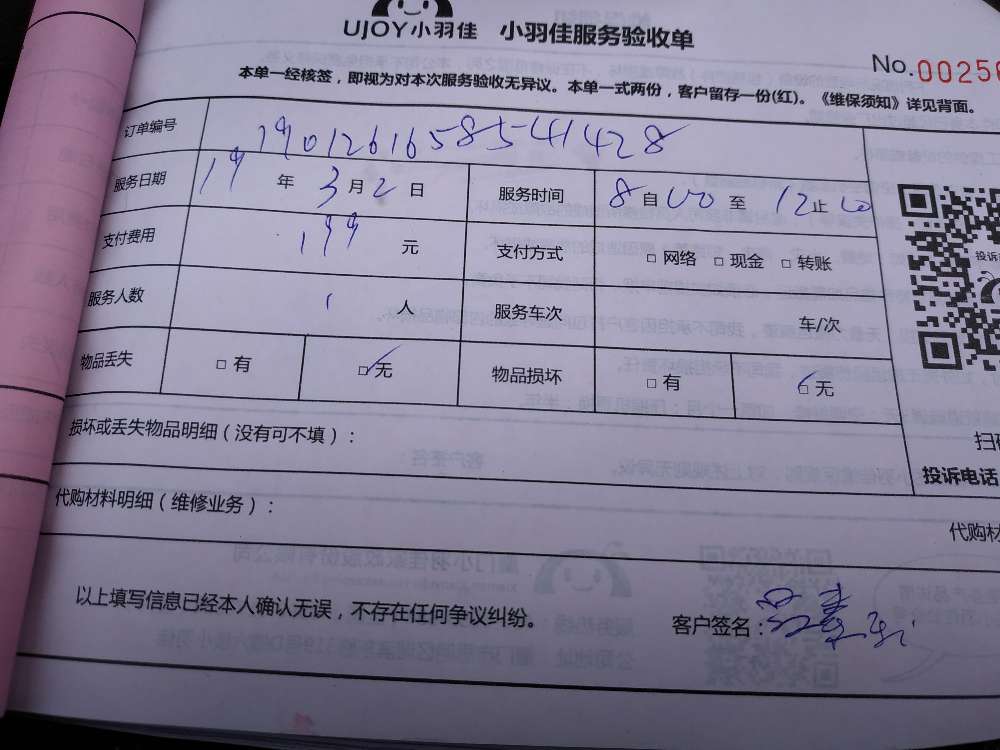 UJOY小羽佳 小羽佳服务验收单
No.00256
本单一经核签，即视为对本次服务验收无异议。本单一式两份，客户留存一份(红)。《维保须知》详见背面。
订单编号 19012616585541428
服务日期 19 年 3 月 2 日 服务时间 8 自 00 至 12 止 00
支付费用 199 元 支付方式 □ 网络 □ 现金 □ 转账
服务人数 1 人 服务车次 车/次
物品丢失 □ 有 □ 无 物品损坏 □ 有 □ 无
损坏或丢失物品明细（没有可不填）：
投诉电话
代购材料明细（维修业务）：
代购材
以上填写信息已经本人确认无误，不存在任何争议纠纷。
客户签名：